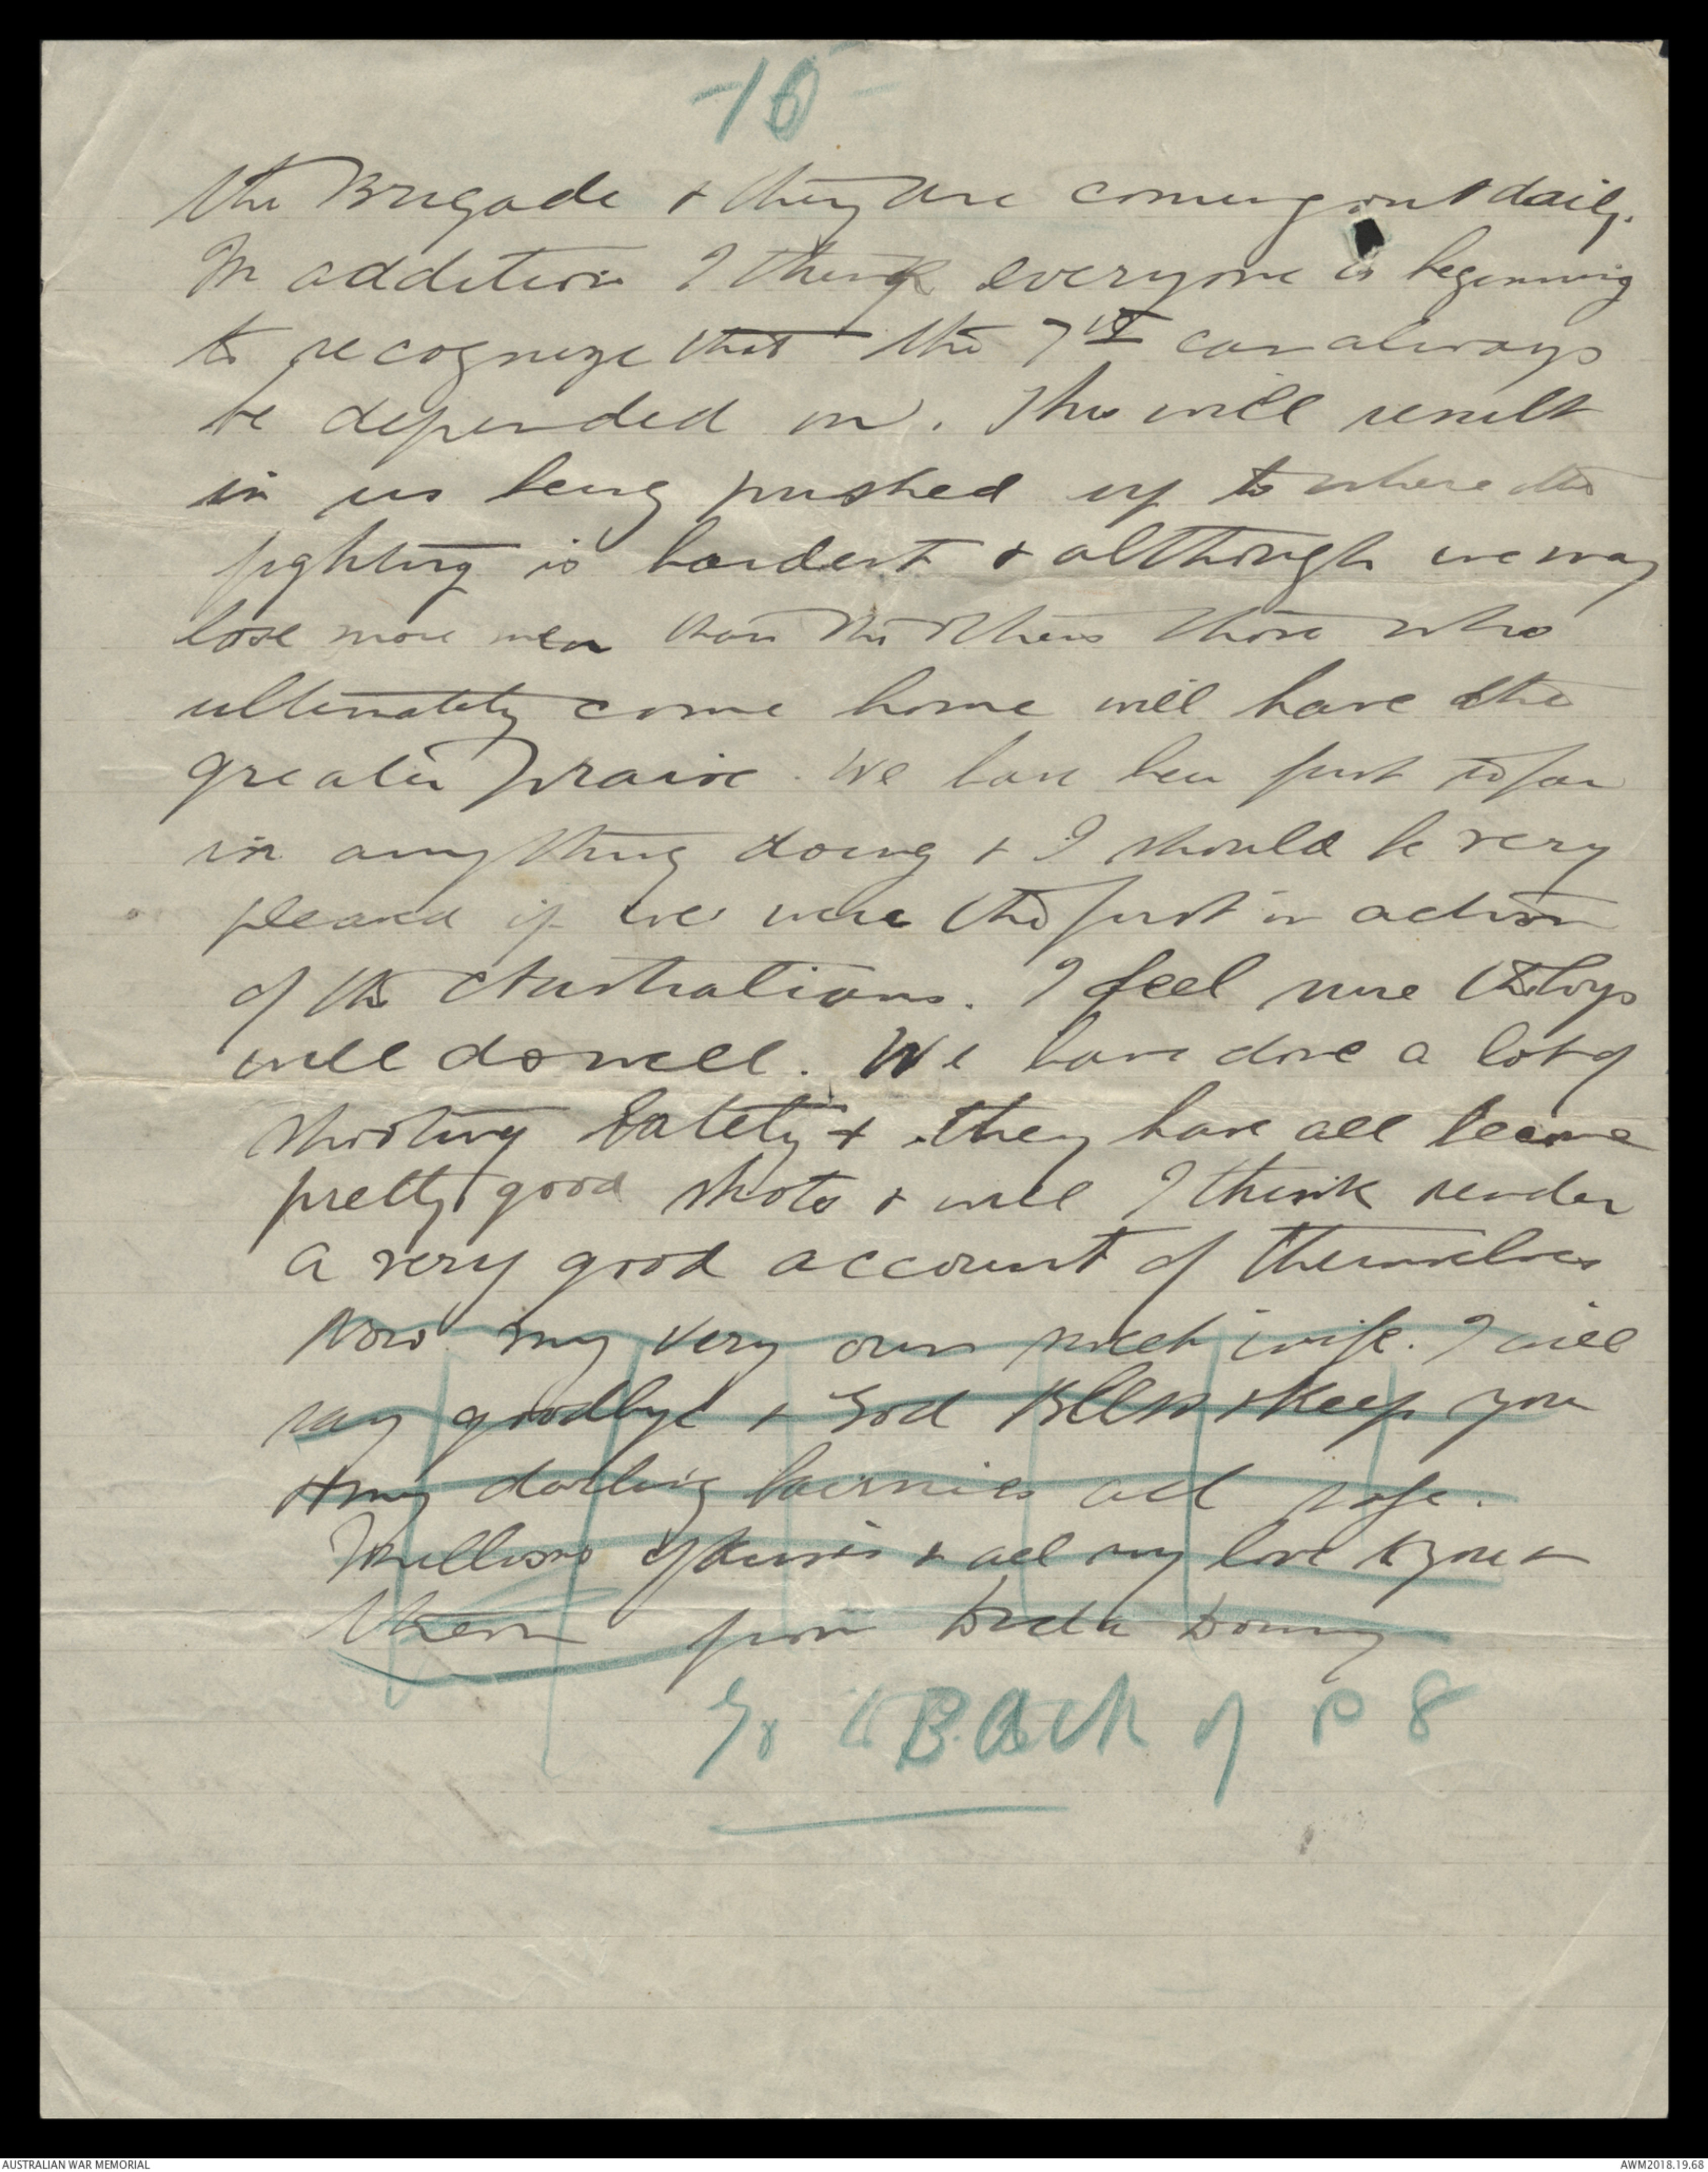 -16-
the Brigade & they are coming out daily.
In addition I think everyone is beginning
to recognize that the 7th can always
be depended on. This will result
in us being pushed up to where the
fighting is hardest & although we may
lose more men than the others those who
ultimately come home will have the
greater praise. We have been first so far
in anything doing & I should be very
pleased if we were the first in action
of the Australians. I feel sure the boys
will do well. We have done a lot of
shooting lately & they have all become
pretty good shots & will I think render
a very good account of themselves
Now my very own sweet wife. I will
say goodbye & God Bless & Keep you
& my darling bairnies all safe.
Millions of kisses & all my love to you &
them from
Go to Back of P 8
AUSTRALIAN WAR MEMORIAL
AWM2018.19.68